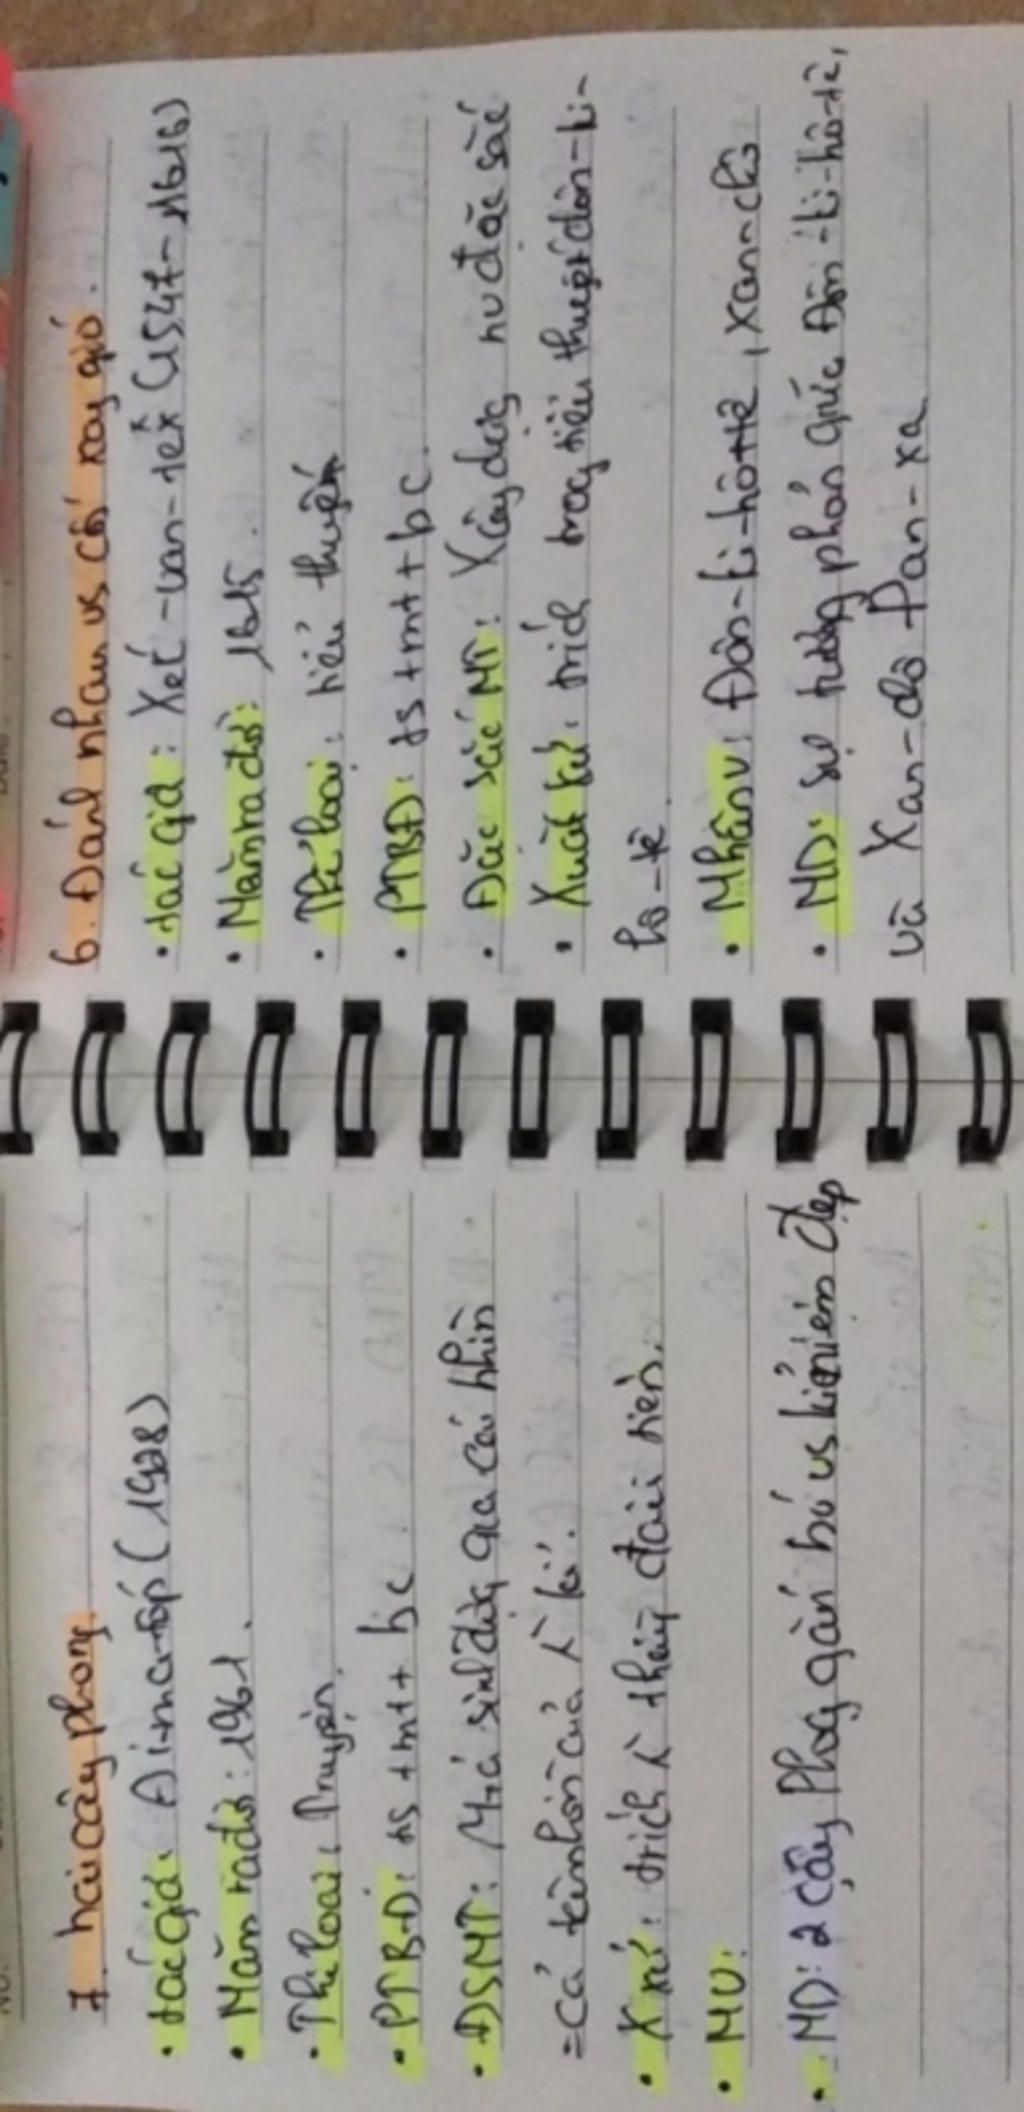 6. Đánh nhau vs cối xay gió.
• tác giả: Xéc-van-tex (1547-1616)
• Năm ra đời: 1615.
• Thể loại: tiểu thuyết
• PTBĐ: ts + mt + bc.
• Đặc sắc NT: Xây dựng nv đặc sắc
• Xuất xứ: trích trong tiểu thuyết đôn-ki-
hô-tê.
• Nhân v: Đôn-ki-hô-tê, xan-chô
• ND: sự tương phản giữa Đôn-ki-hô-tê,
và Xan-chô Pan-xa
7. hai cây phong.
• tác giả: Ai-ma-tốp (1928)
• Năm ra đời: 1961.
• Thể loại: Truyện.
• PTBĐ: ts + mt + bc
• ĐSNT: M.tả sinh động qua cái nhìn
= cả tâm hồn của
• X xứ: trích thầy đầu tiên.
• NV:
• ND: 2 cây Phong gắn bó vs kỉ niệm đẹp